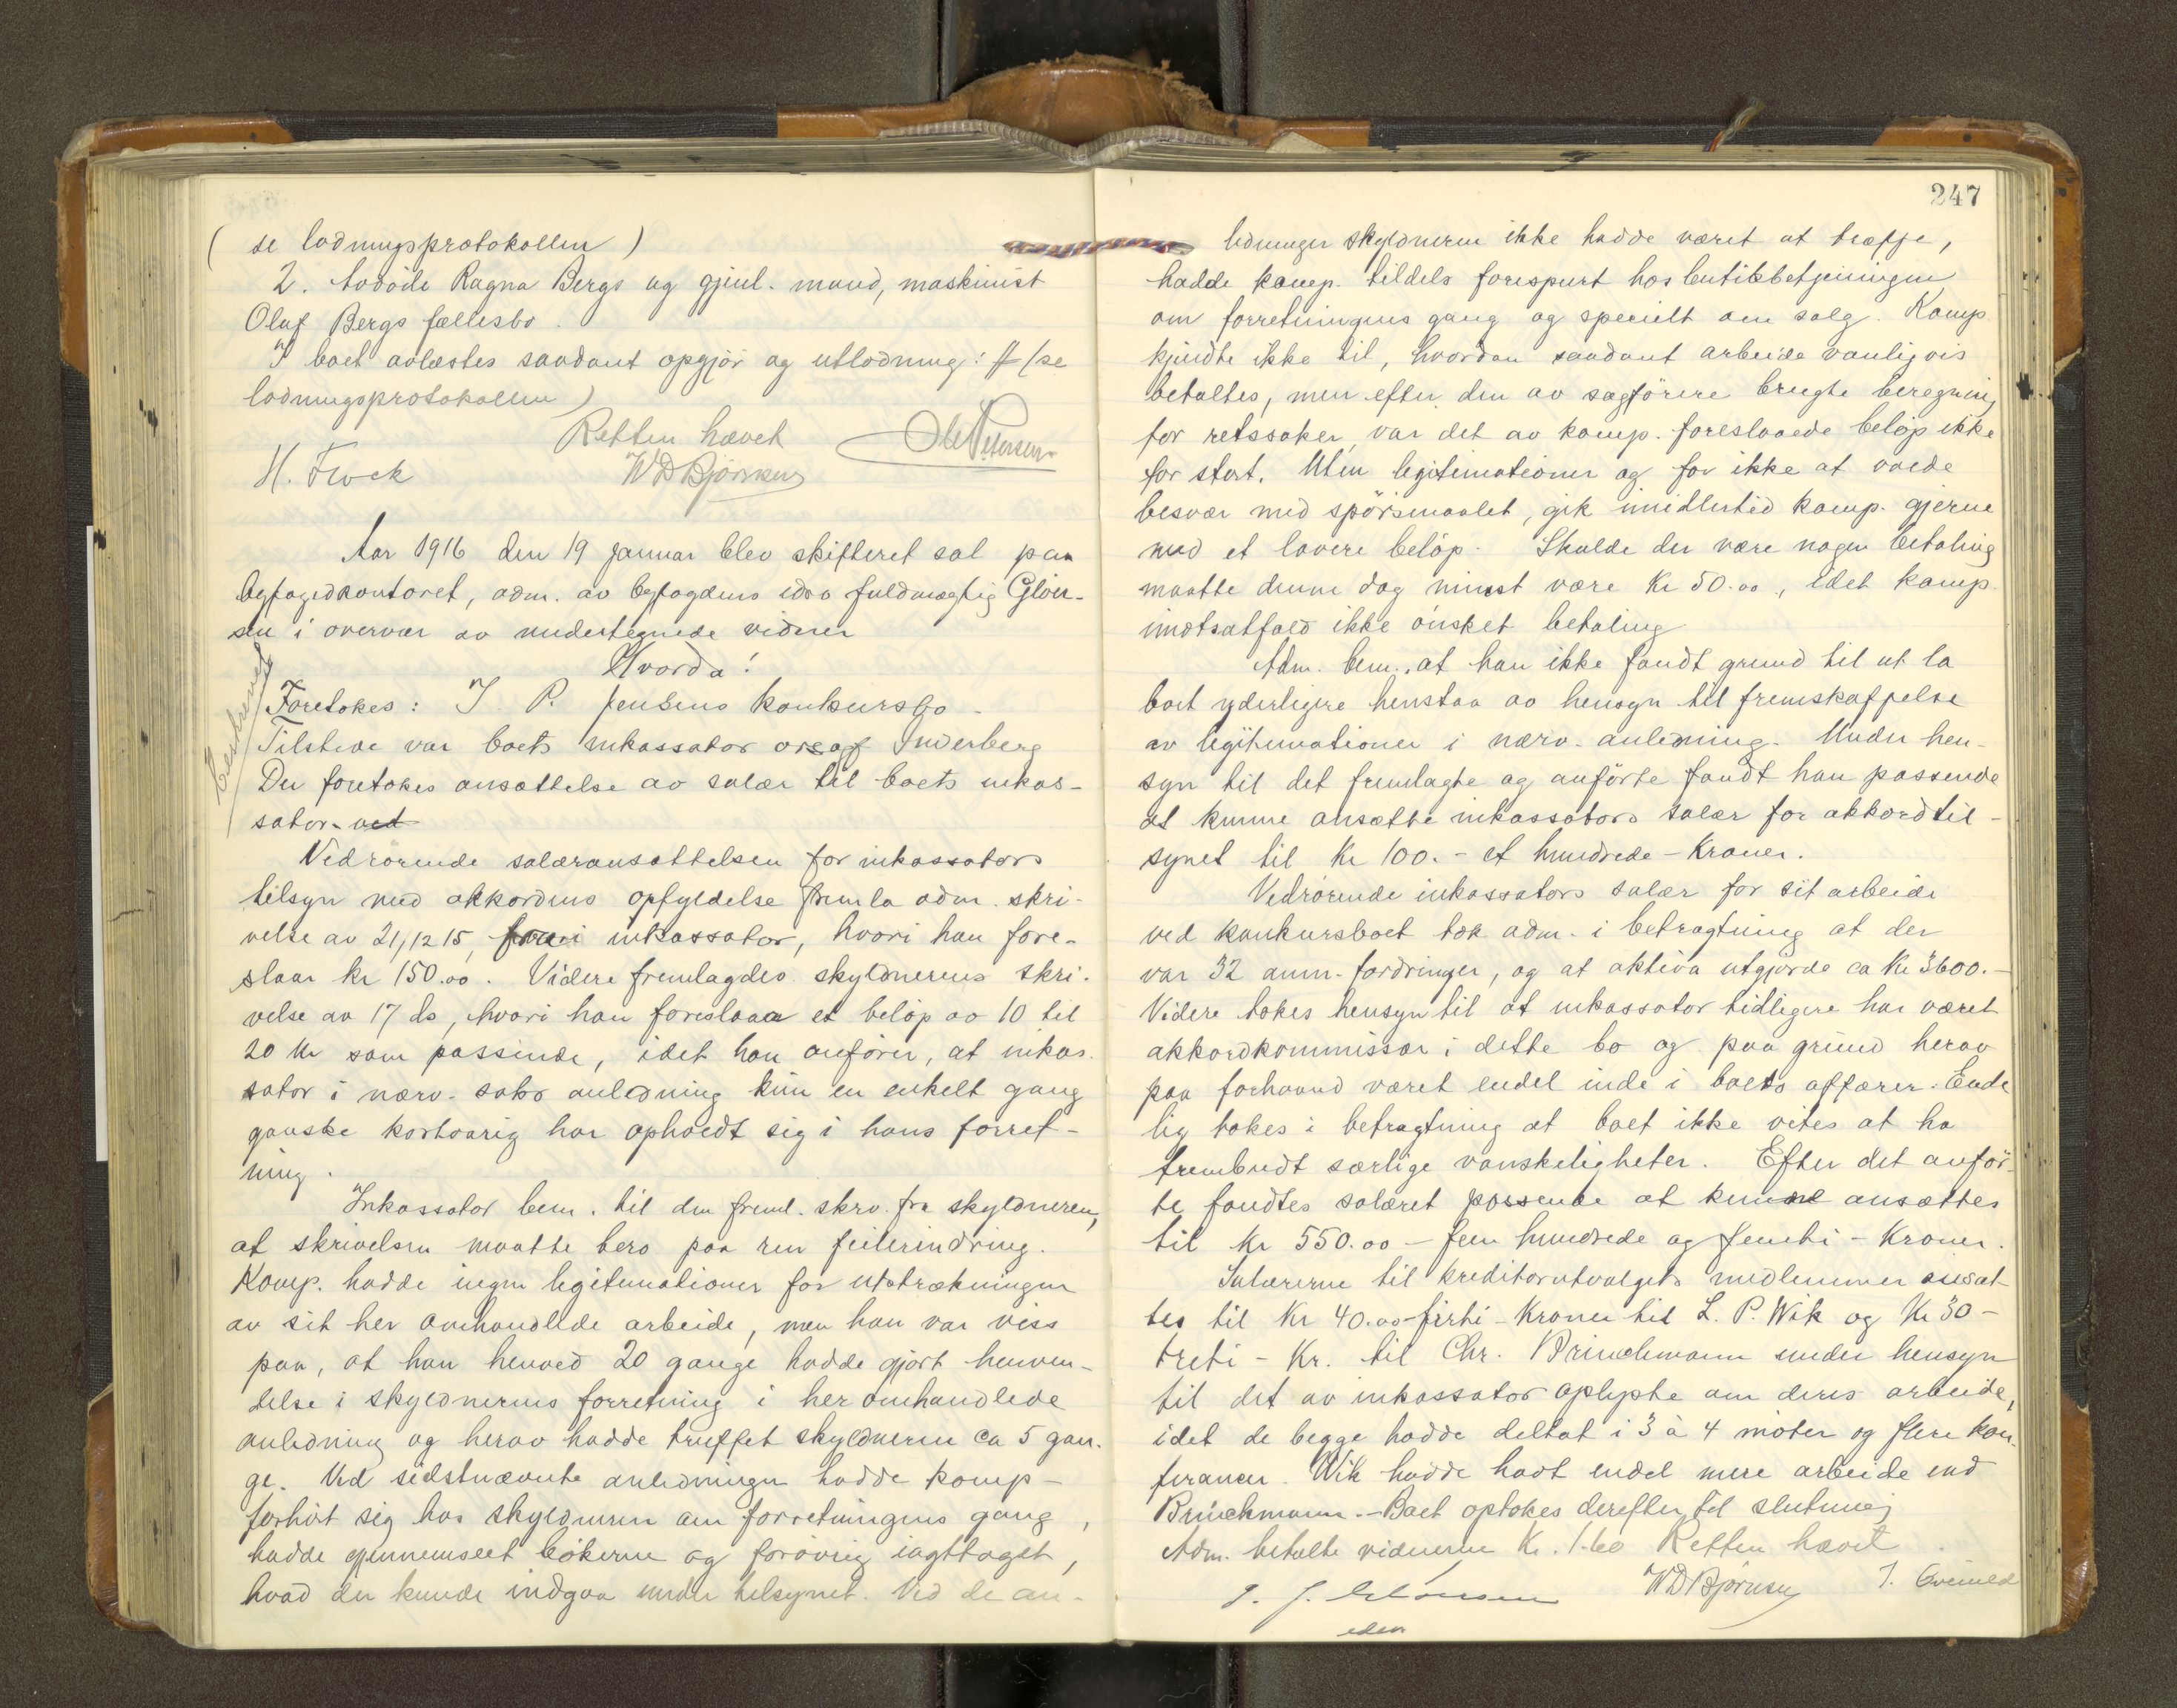 ( se lodningsprotokollen )
2. Avdøde Ragna Bergs og gjenl. mand, maskinist
Olaf Bergs fællesbo.
I boet avlæstes saadant opgjør og utlodning: (se
lodningsprotokollen)
Retten hævet
H. Flock
WDBjørnsen
Aar 1916 den 19 januar blev skifteret sat paa
byfogedkontoret, adm. av byfogdens edsv fuldmægtig Gløer-
sen i overvær av undertegnede vidner
Hvorda!
Foretokes: J. P. Jensens konkursbo -
Tilstede var boets inkassator orsagf Inderberg
Der foretokes ansættelse av salær til boets inkas-
sator. ved
Vedrørende salæransættelsen for inkassators
tilsyn med akkordens opfyldelse fremla adm. skri-
velse av 21/12 15, fra inkassator, hvori han fore-
slaar kr 150.00. Videre fremlagdes skyldnerens skri-
velse av 17 ds, hvori han foreslaar et beløp av 10 til
20 kr som passende, idet han anfører, at inkas-
sator i nærv. saks anledning kun en enkelt gang
ganske kortvarig har opholdt sig i hans forret-
ning.
Inkassator bem. til den freml. skrv. fra skyldneren,
at skrivelsen maatte bero paa ren feilerindring.
Komp. hadde ingen legitimationer for utstrækningen
av sit her omhandlede arbeide, men han var viss
paa, at han henved 20 gange hadde gjort henven-
delse i skyldnerens forretning i her omhandlede
anledning og herav hadde truffet skyldneren ca 5 gan-
ge. Ved sidstnævnte anledninger hadde komp-
forhørt sig hos skyldneren om forretningens gang,
hadde gjennemseet bøkerne og forøvrig iagttaget,
hvad der kunde indgaa under tilsynet. Ved de an-
247
ledninger skyldneren ikke hadde været at træffe,
hadde komp. tildels forespurt hos butikbetjeningen
om forretningens gang og specielt om salg. Komp
kjendte ikke til, hvordan saadant arbeide vanligvis
betaltes, men efter den av sagførere brugte beregning
for retssaker, var det av komp. foreslaaede beløp ikke
for stort. Uten legitimationer og for ikke at volde
besvær med spørsmaalet, gik imidlertid komp. gjerne
med et lavere beløp. Skulde der være nogen betaling
maatte denne dog minst være Kr 50.00, idet komp.
imotsatfald ikke ønsket betaling
Adm. bem. at han ikke fandt grund til at la
boet yderligere henstaa av hensyn til fremskaffelse
av legitimationer i nærv. anledning. Under hen-
syn til det fremlagte og anførte fandt han passende
at kunne ansætte inkassators salær for akkordtil-
synet til kr 100.- et hundrede - Kroner.
Vedrørende inkassators salær for sit arbeide
ved konkursboet tok adm. i betragtning at der
var 32 anm. fordringer, og at aktiva utgjorde ca Kr 3600.-
Videre tokes hensyn til at inkassator tidligere har været
akkordkommissær i dette bo og paa grund herav
paa forhaand været endel inde i boets affærer. Ende
lig tokes i betragtning at boet ikke vites at ha
frembudt særlige vanskeligheter. Efter det anfør-
te fandtes salæret passende at kunne ansættes
til kr 550.00 - fem hundrede og femti - Kroner.
Salærerne til kreditorutvalgets medlemmer ansat-
tes til Kr 40.00 - firti - Kroner til L. P. Wik og Kr 30 -
treti - Kr. til Chr. Brinchmann under hensyn
til det av inkassator oplyste om deres arbeide,
idet de begge hadde deltat i 3 à 4 møter og flere kon-
feranser. Wik hadde havt endel mere arbeide end
Brinchmann. - Boet optokes derefter til slutning
Adm. betalte vidnerne Kr. 1.60 Retten hævet
WDBjørnsen